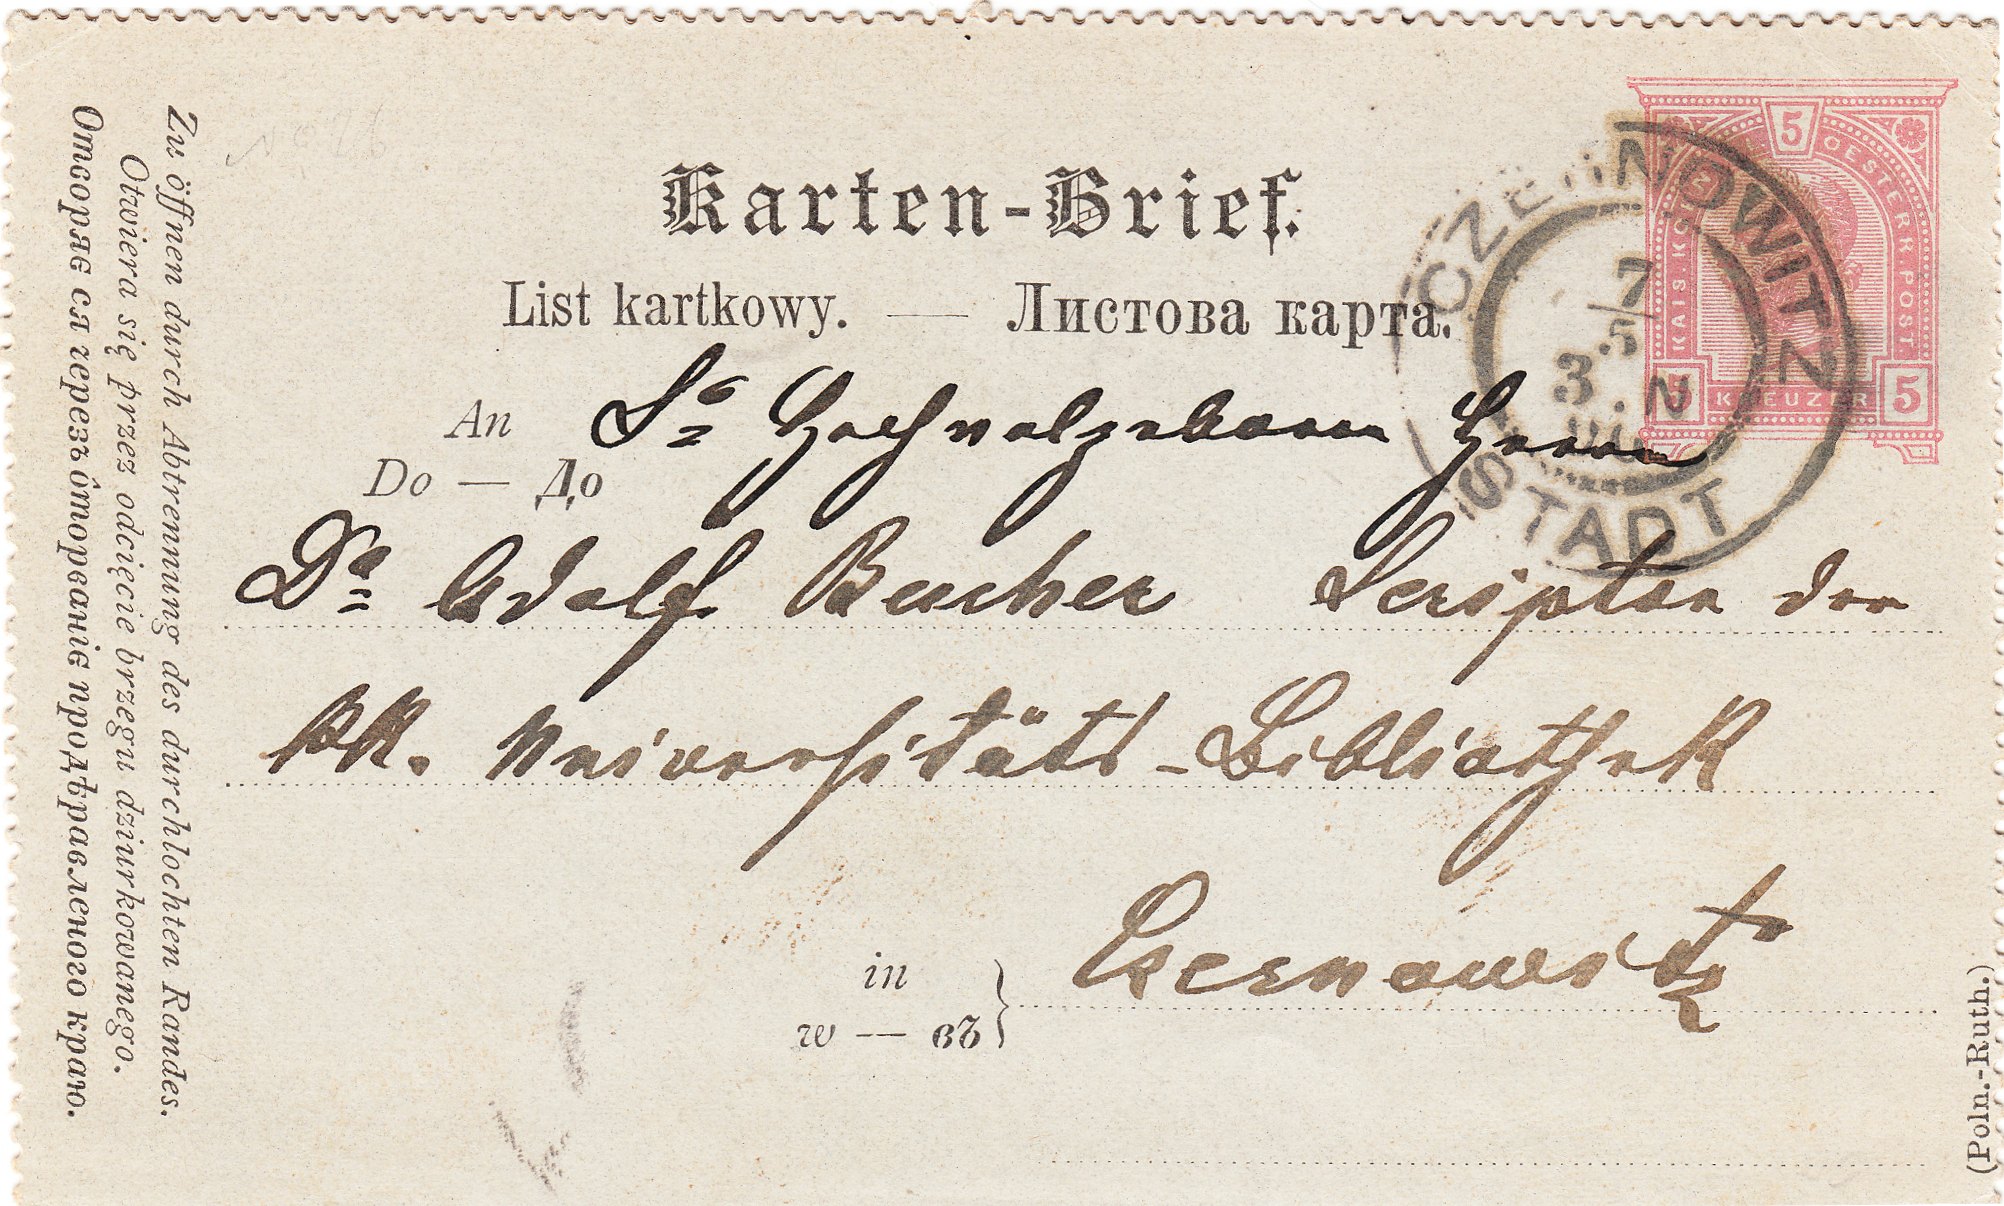 Karten-Brief.
List kartkowy. — Листова карта.
An Sr Hochwolgeboren Herrn
Do — До
Dr Adolf Bucher Scriptor der
kk. Universitäts-Bibliothek
in Czernowitz
w — въ
Zu öffnen durch Abtrennung des durchlochten Randes.
Otwiera się przez odcięcie brzegu dziurkowanego.
Отворяє ся черезъ ôторваніє продѣравленого краю.
(Poln.-Ruth.)
5
KAIS. KÖ OESTERR. POST
5 KREUZER 5
CZERNOWITZ
7
5
3. N
STADT